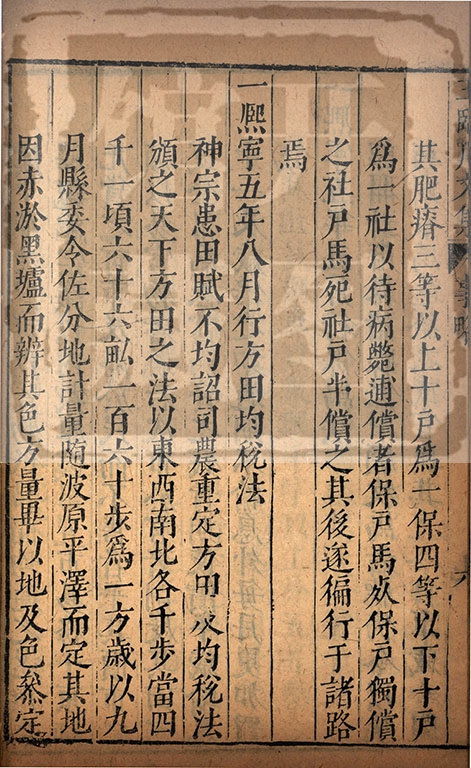 其肥瘠三等以上十戶爲一保四等以下十戶
爲一社以待病斃逋償者保戶馬㱙保戶獨償
之社戶馬死社戶半償之其後遂徧行于諸路
焉
一熈寧五年八月行方田均稅法
神宗患田賦不均詔司農重定方田及均稅法
頒之天下方田之法以東西南北各千步當四
千一頃六十六畆一百六十步爲一方歲以九
月縣委令佐分地計量隨波原平澤而定其地
因赤淤黑壚而辨其色方量畢以地及色叅定